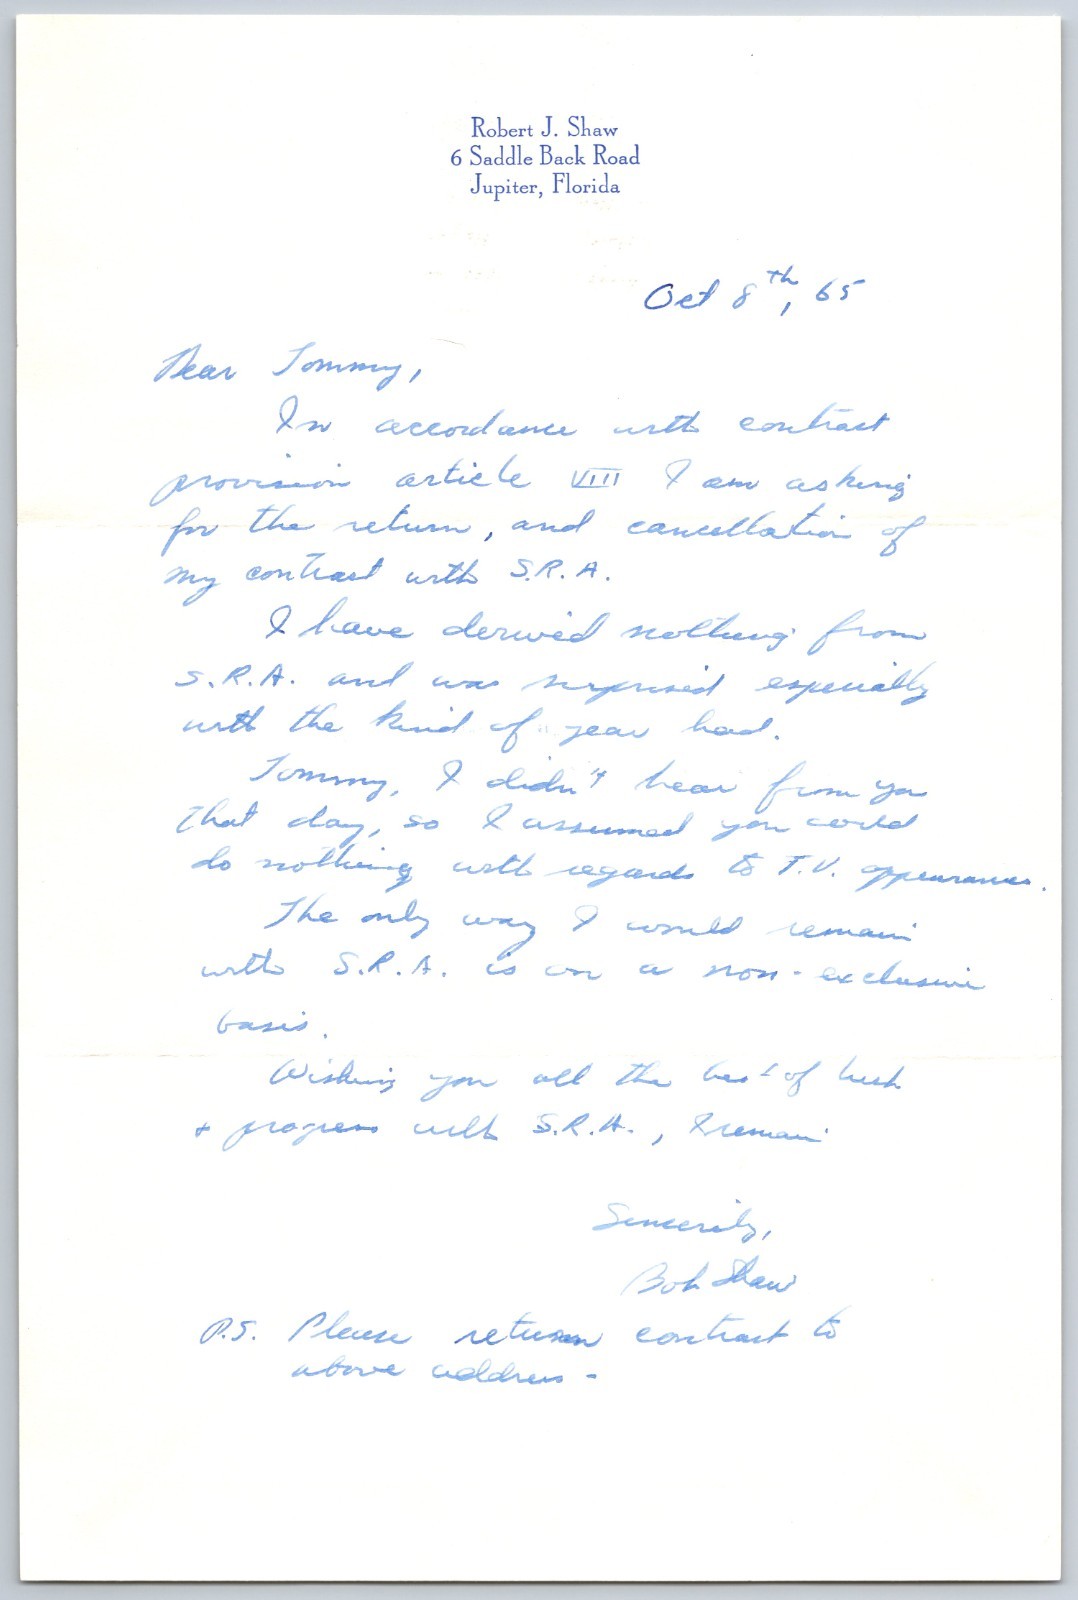 Robert J. Shaw
6 Saddle Back Road
Jupiter, Florida
Oct 8th, 65
Dear Tommy,
In accordance with contract
provision article VIII I am asking
for the return, and cancellation of
my contract with S.R.A.
I have derived nothing from
S.R.A. and was surprised especially
with the kind of year had.
Tommy, I didn't hear from you
that day, so I assumed you could
do nothing with regards to T.V. appearances.
The only way I would remain
with S.R.A. is on a non-exclusive
basis.
Wishing you all the best of luck
+ progress with S.R.A., I remain
Sincerely,
Bob Shaw
P.S. Please return contract to
above address -